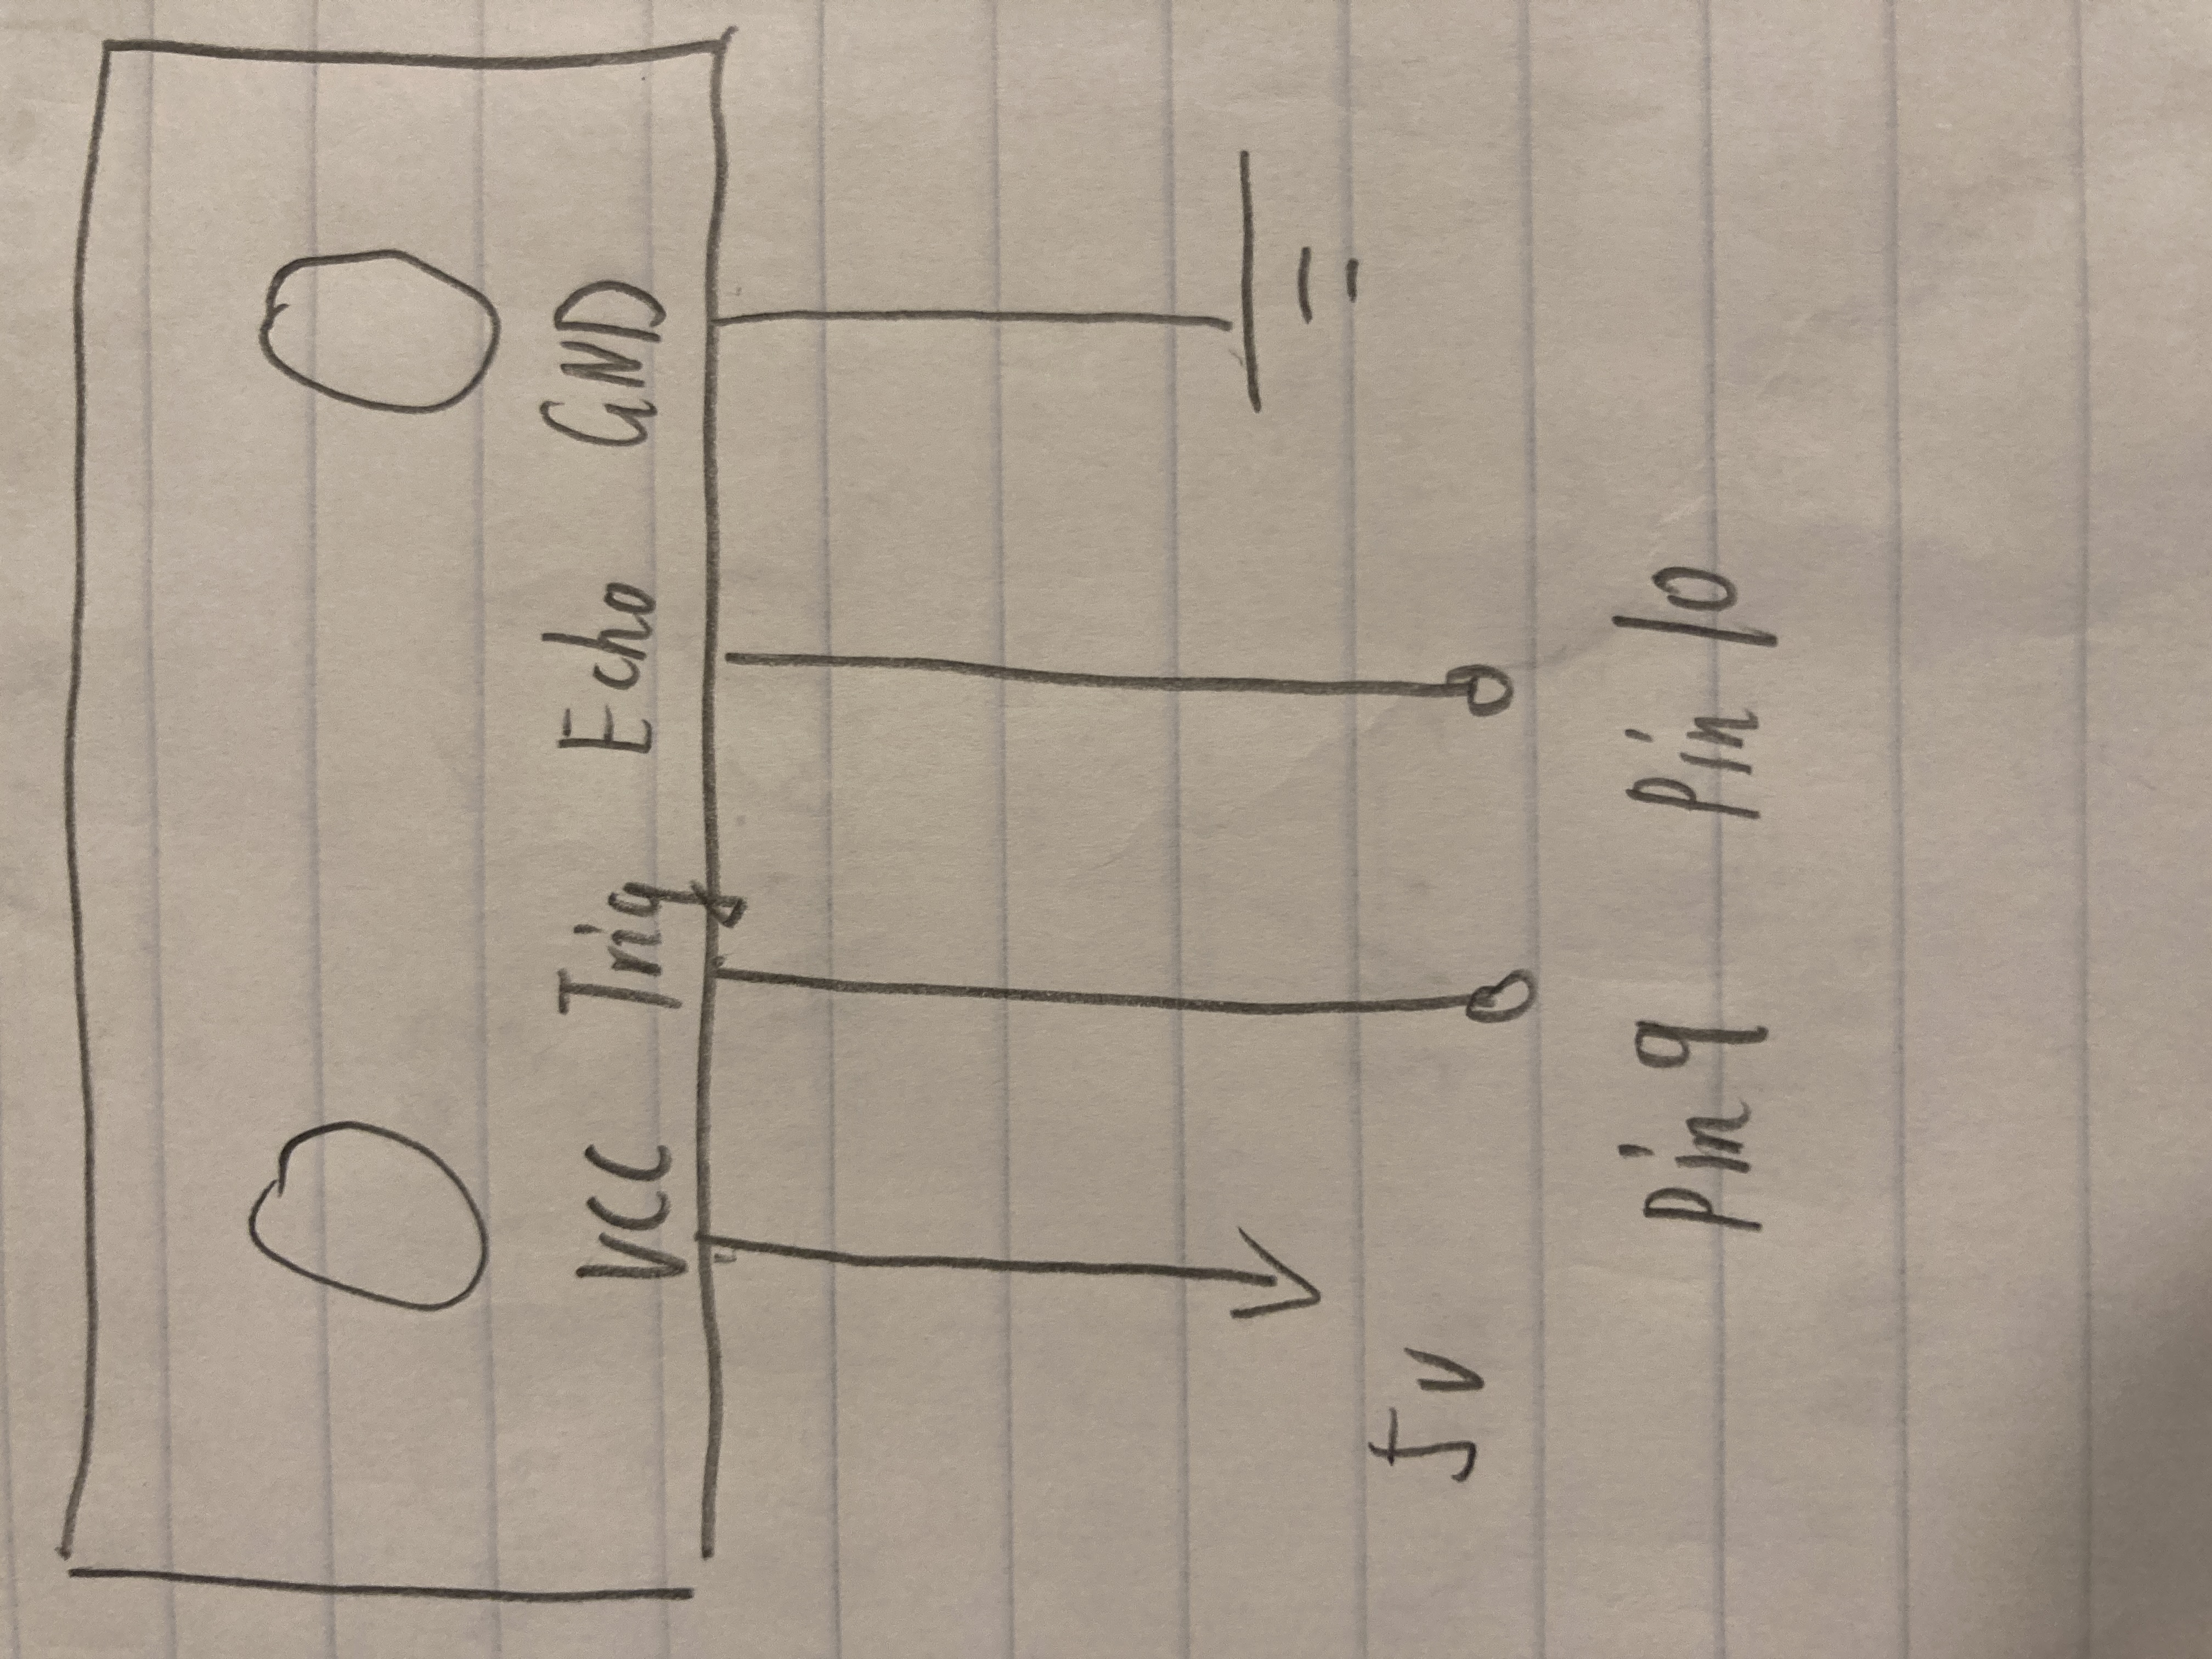 VCC Trig Echo GND
5v
Pin 9 Pin 10